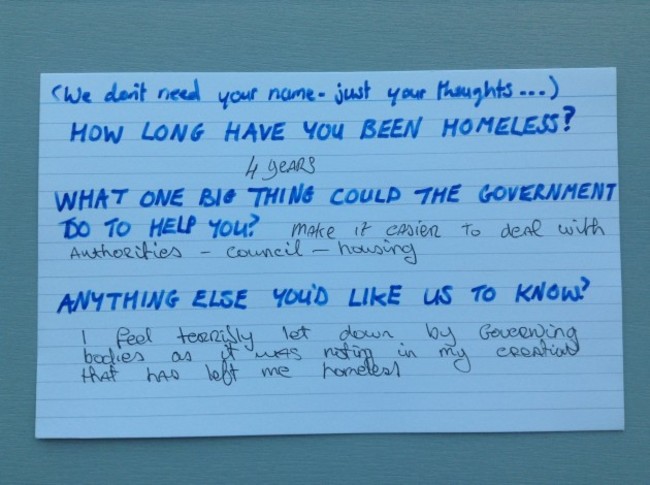 (We don't need your name - just your thoughts...)
HOW LONG HAVE YOU BEEN HOMELESS?
4 years
WHAT ONE BIG THING COULD THE GOVERNMENT
DO TO HELP YOU? make it easier to deal with
Authorities - council - housing
ANYTHING ELSE YOU'D LIKE US TO KNOW?
I feel terribly let down by Governing
bodies as it was noting in my creation
that has left me homeless